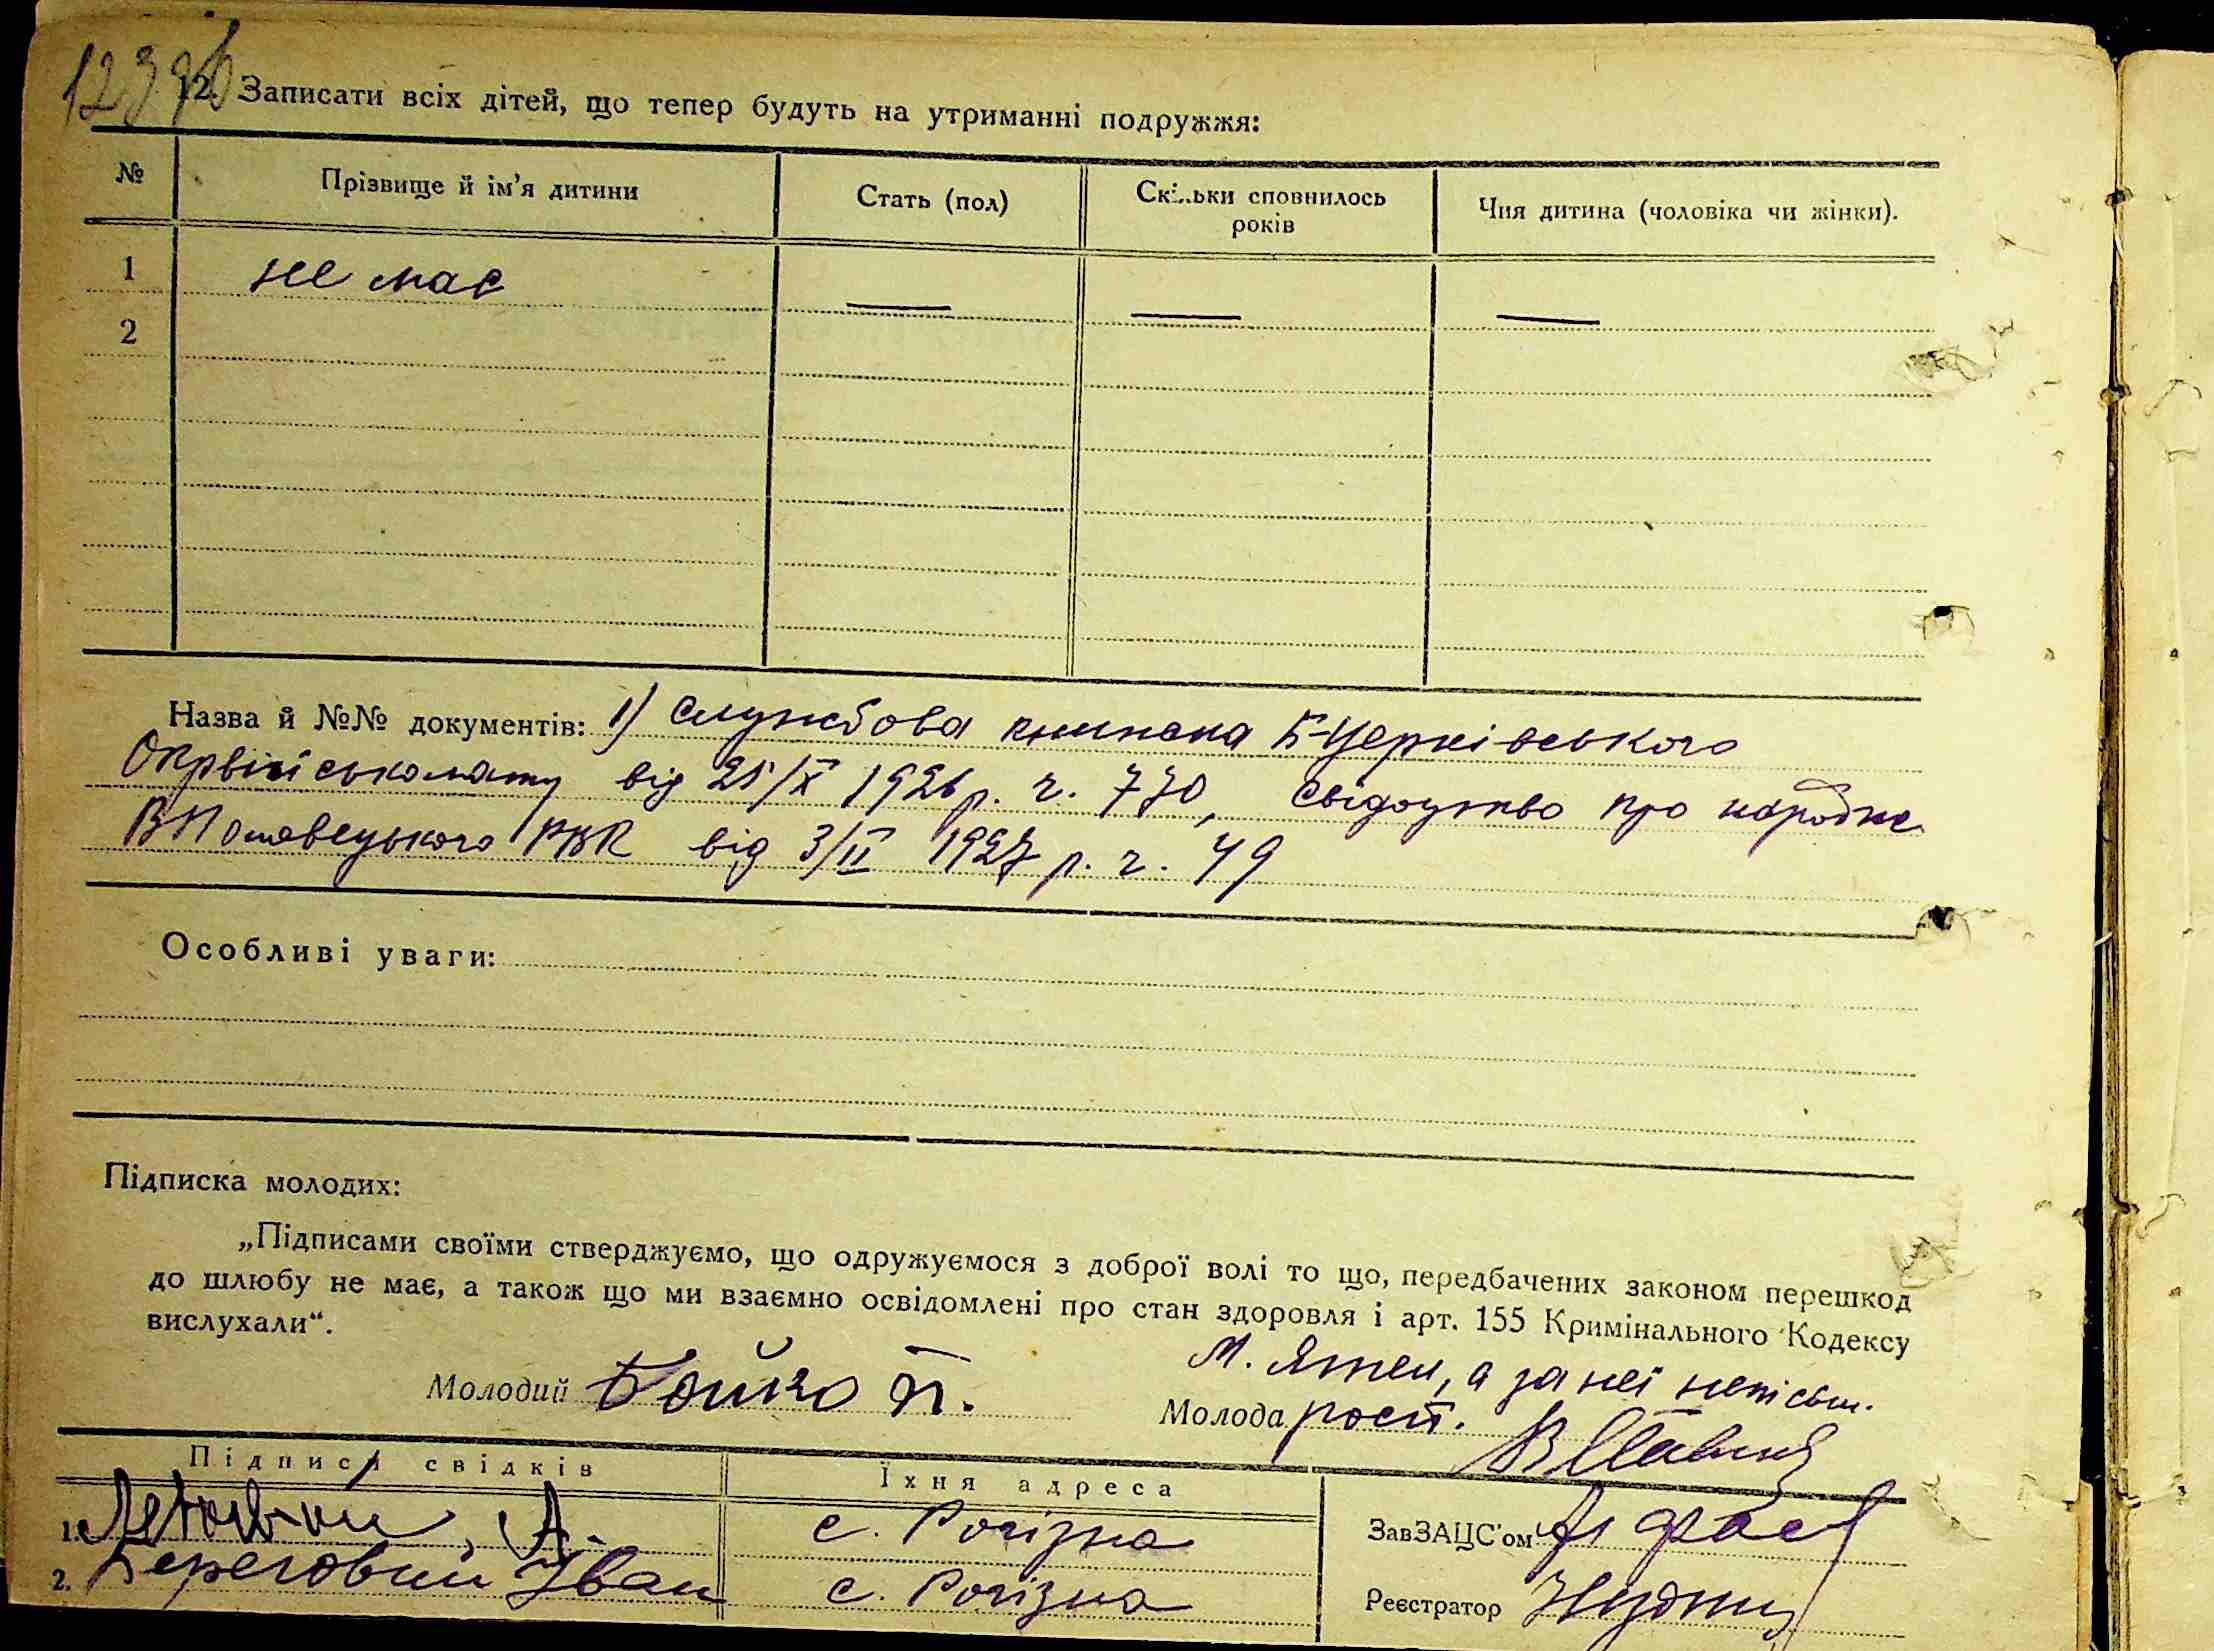 12. Записати всіх дітей, що тепер будуть на утриманні подружжя:
№ Прізвище й ім'я дитини Стать (пол) Скільки сповнилось років Чия дитина (чоловіка чи жінки).
1 не має — — —
2
Назва й №№ документів: 1) Службова книжка Б-Церківського
Окрвійськомату від 25/X 1926 р. ч. 770, свідоцтво про народже
Володарського РВК від 3/II 1927 р. ч. 49
Особливі уваги:
Підписка молодих:
„Підписами своїми стверджуємо, що одружуємося з доброї волі то що, передбачених законом перешкод
до шлюбу не має, а також що ми взаємно освідомлені про стан здоровля і арт. 155 Кримінального Кодексу
вислухали“.
Молодий Бойко П.
М. а за неї неписьм.
Молода розп.
Підписи свідків Їхня адреса
1. А. с. Рогізна
ЗавЗАЦС'ом
2. Береговий Іван с. Рогізна
Реєстратор